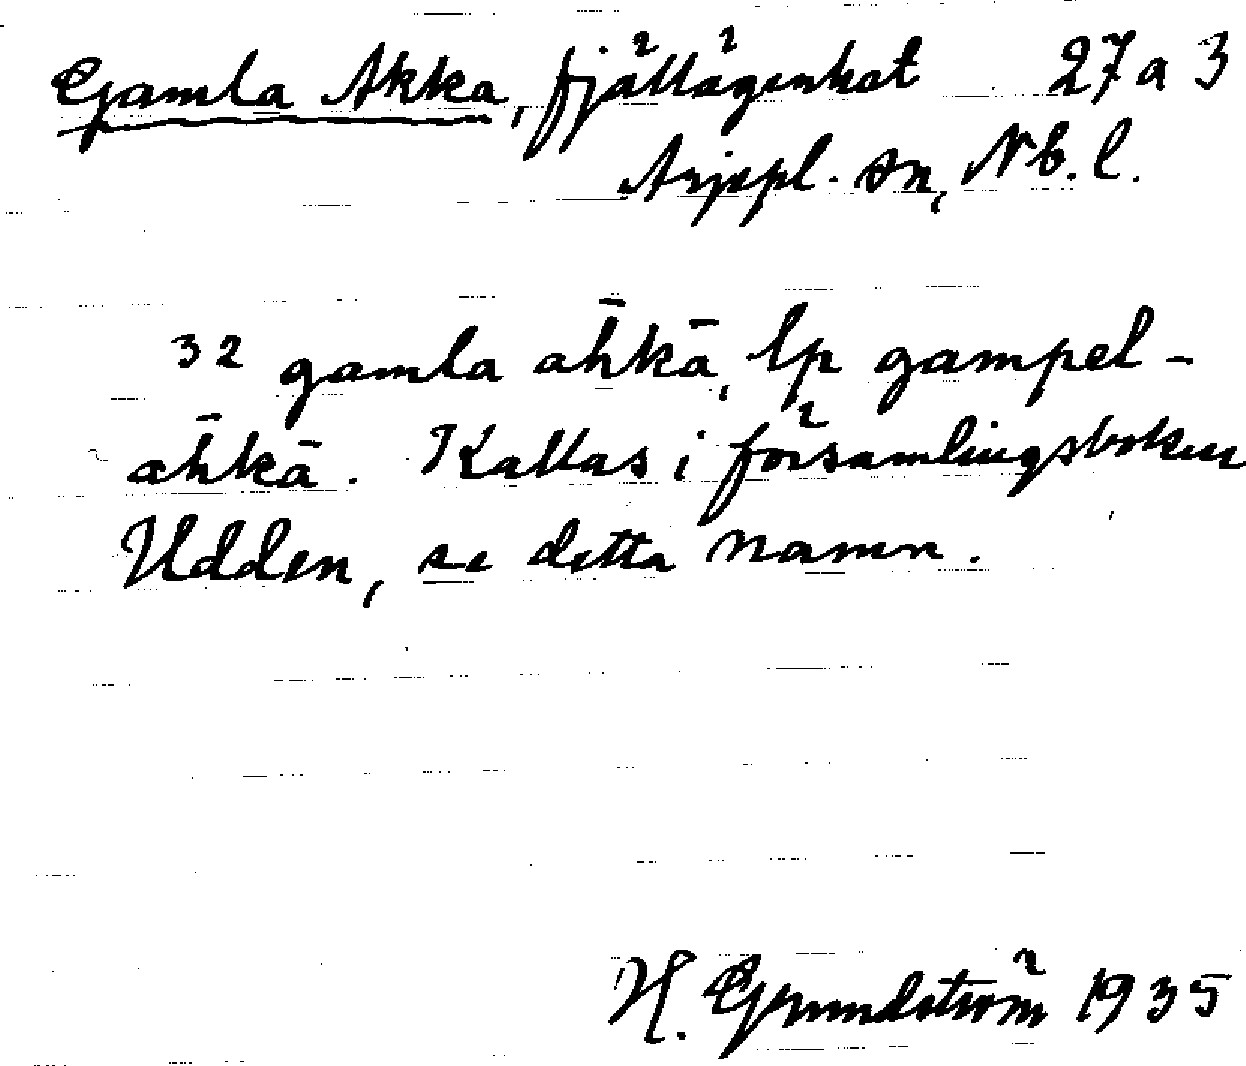 Gamla Akka, fjällägenhet 27 a 3
Arjepl. sn, Nb. l.
32 gamla āhkā, lp gampel-
āhkā. Kallas i församlingsboken
Udden, se detta namn.
H. Grundström 1935